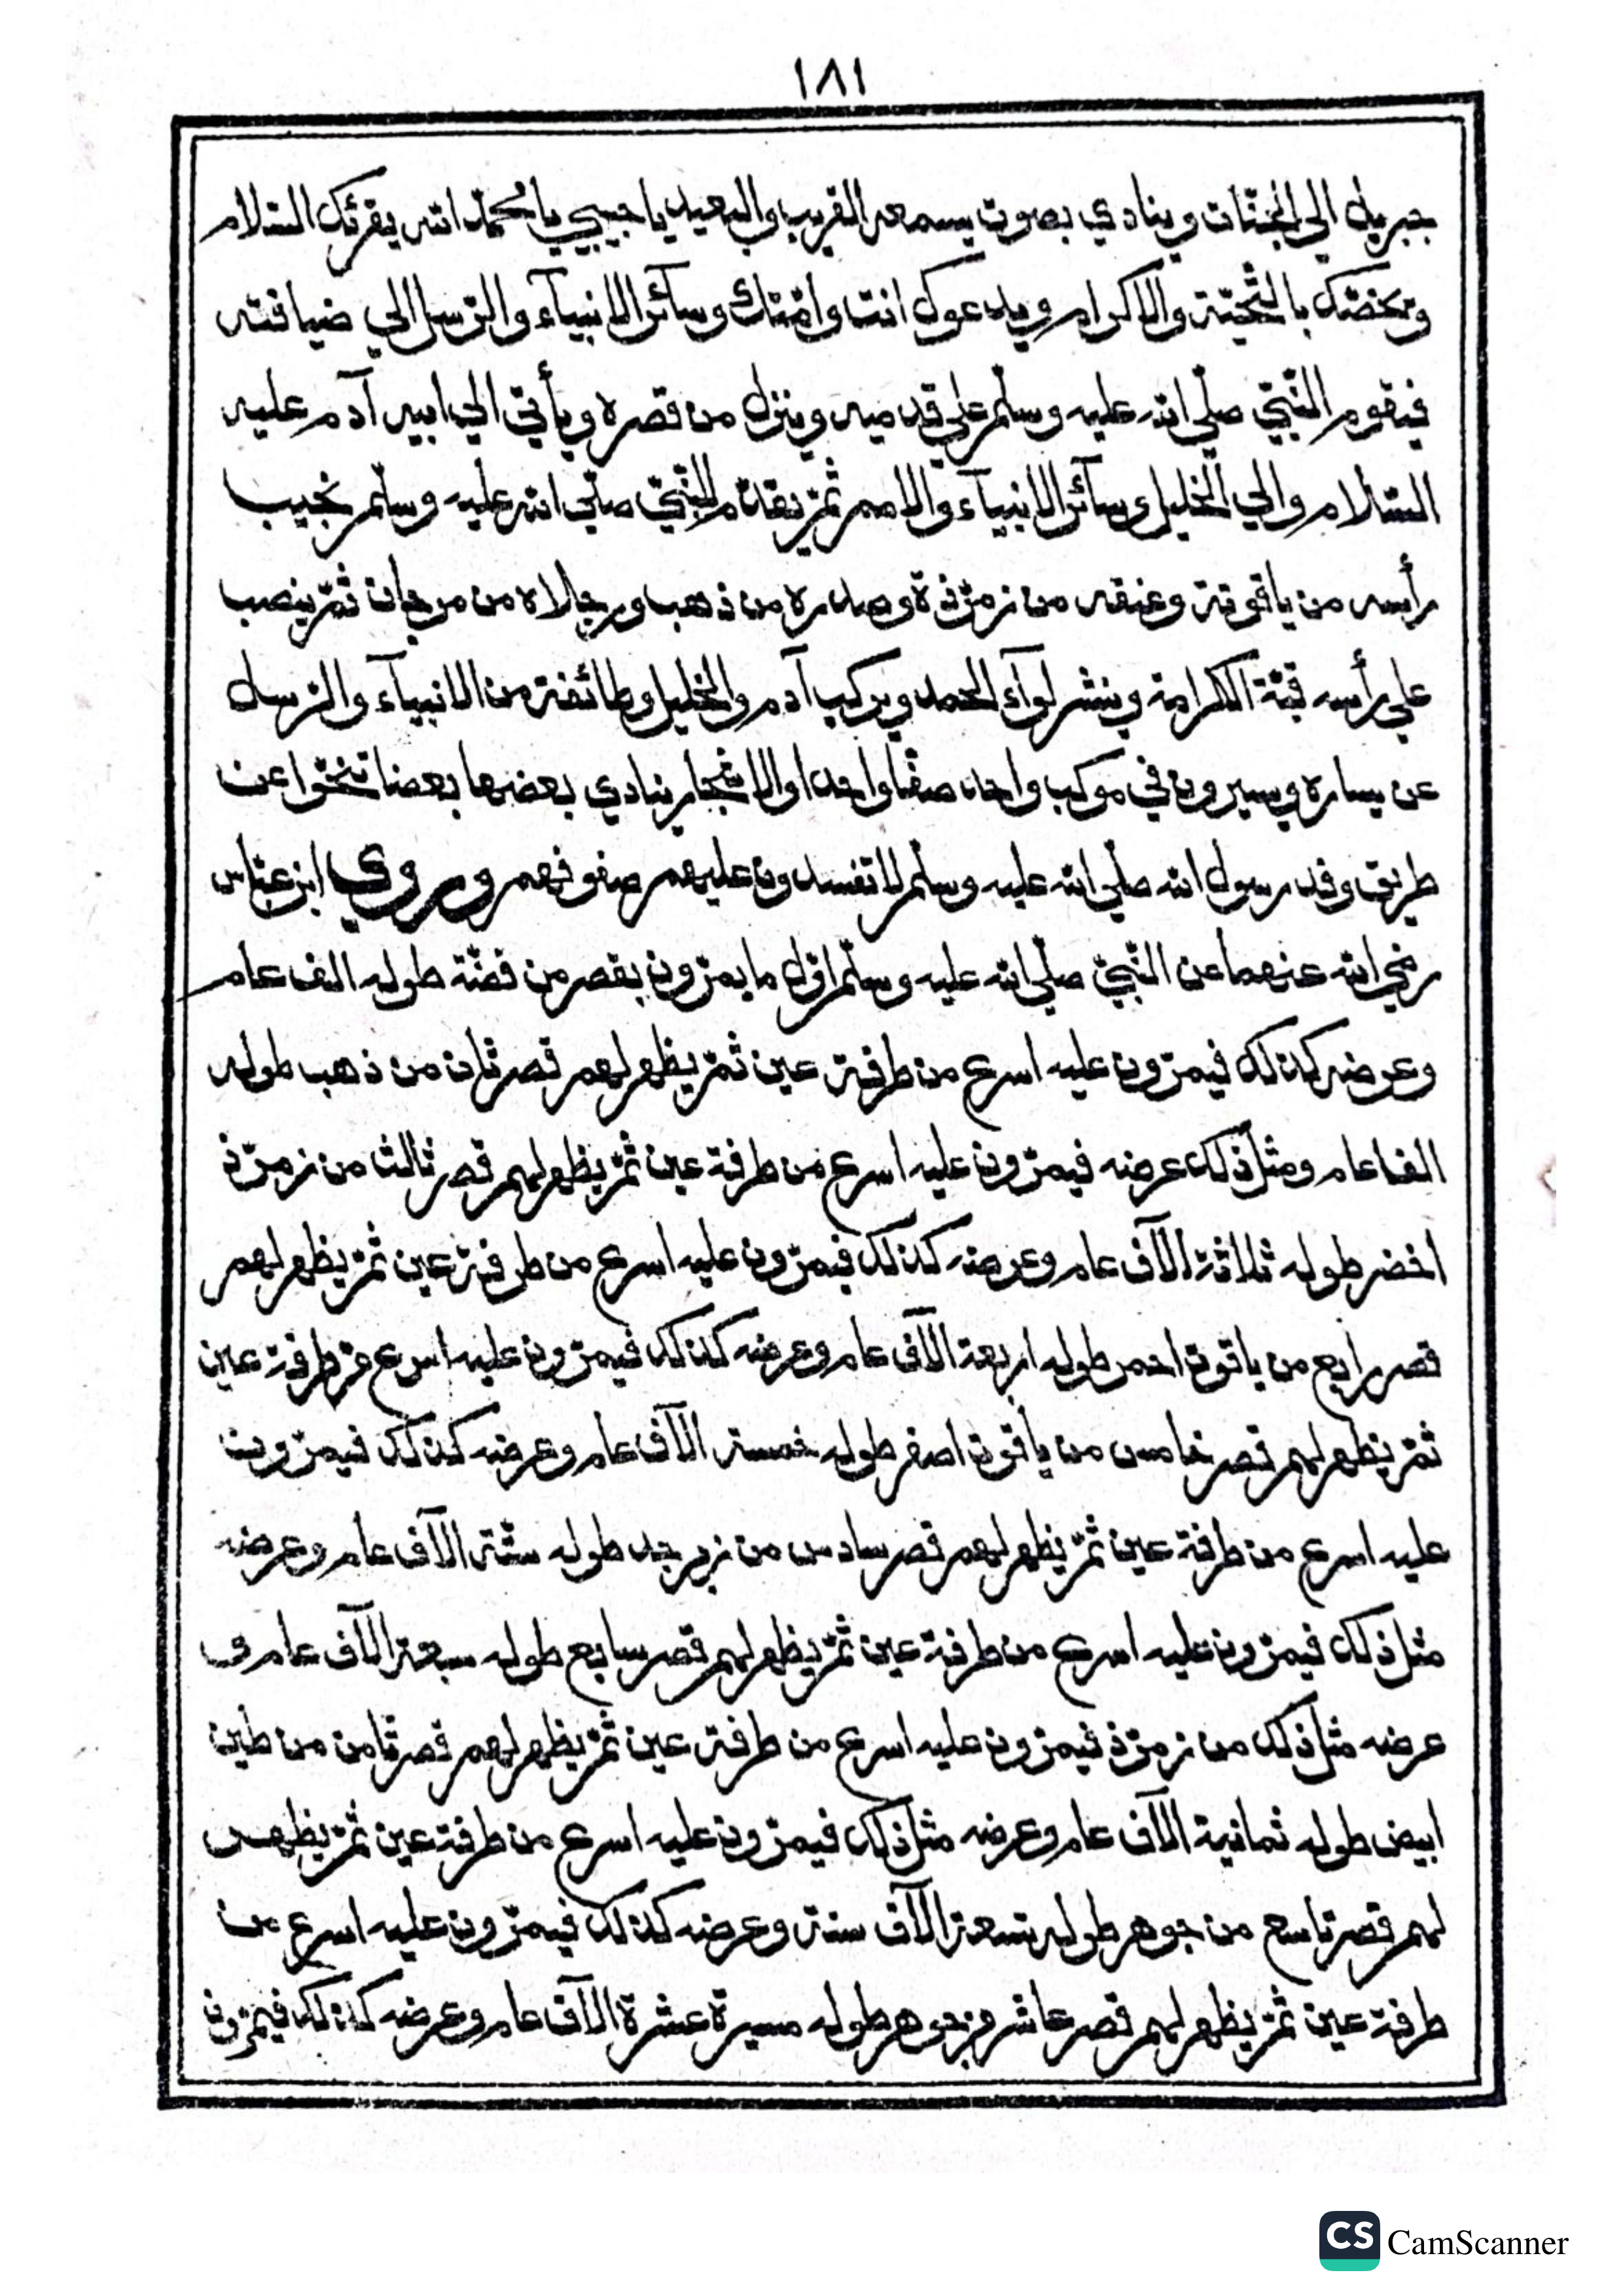 ١٨١
جبريل الي الجنّات وينادي بصوت يسمعه القريب والبعيد يا حبيبي يا محمّد الله يقرئك السّلام
ويخصّك بالتّحيّة والاكرام ويدعوك انت وامّتك وسآئر الانبيآء والرّسل الي ضيافته
فيقوم النّبيّ صلّي الله عليه وسلّم علي قدميه وينزل من قصره ويأتي الي ابيه آدم عليه
السّلام والي الخليل وسآئر الانبيآء والامم ثمّ يقدّم للنّبيّ صلّي الله عليه وسلّم نجيب
رأسه من ياقوتة وعنقه من زمرّذة وصدره من ذهب ورجلاه من مرجان ثمّ ينصب
علي رأسه قبّة الكرامة وينشر لوآء الحمد ويركب آدم والخليل وطائفة من الانبيآء والرّسل
عن يساره ويسيرون في موكب واحد صفّا واحدا والاشجار ينادي بعضها بعضا تنحّوا عن
طريق وفد رسول الله صلّي الله عليه وسلّم لا تفسدون عليهم صفوفهم وروي ابن عبّاس
رضي الله عنهما عن النّبيّ صلّي الله عليه وسلّم اوّل ما يمرّون بقصر من فضّة طوله الف عام
وعرضه كذلك فيمرّون عليه اسرع من طرفة عين ثمّ يظهر لهم قصر ثان من ذهب طوله
الفا عام ومثل ذلك عرضه فيمرّون عليه اسرع من طرفة عين ثمّ يظهر لهم قصر ثالث من زمرّذ
اخضر طوله ثلاثة الآف عام وعرضه كذلك فيمرّون عليه اسرع من طرفة عين ثمّ يظهر لهم
قصر رابع من ياقوت احمر طوله اربعة الآف عام وعرضه كذلك فيمرّون عليه اسرع من طرفة عين
ثمّ يظهر لهم قصر خامس من ياقوت اصفر طوله خمسة الآف عام وعرضه كذلك فيمرّون
عليه اسرع من طرفة عين ثمّ يظهر لهم قصر سادس من زبرجد طوله ستّة الآف عام وعرضه
مثل ذلك فيمرّون عليه اسرع من طرفة عين ثمّ يظهر لهم قصر سابع طوله سبعة الآف عام و
عرضه مثل ذلك من زمرّذ فيمرّون عليه اسرع من طرفة عين ثمّ يظهر لهم قصر ثامن من طين
ابيض طوله ثمانية الآف عام وعرضه مثل ذلك فيمرّون عليه اسرع من طرفة عين ثمّ يظهر
لهم قصر تاسع من جوهر طوله تسعة الآف سنة وعرضه كذلك فيمرّون عليه اسرع من
طرفة عين ثمّ يظهر لهم قصر عاشر من جوهر طوله مسيرة عشرة الآف عام وعرضه كذلك فيمرّون
CS CamScanner